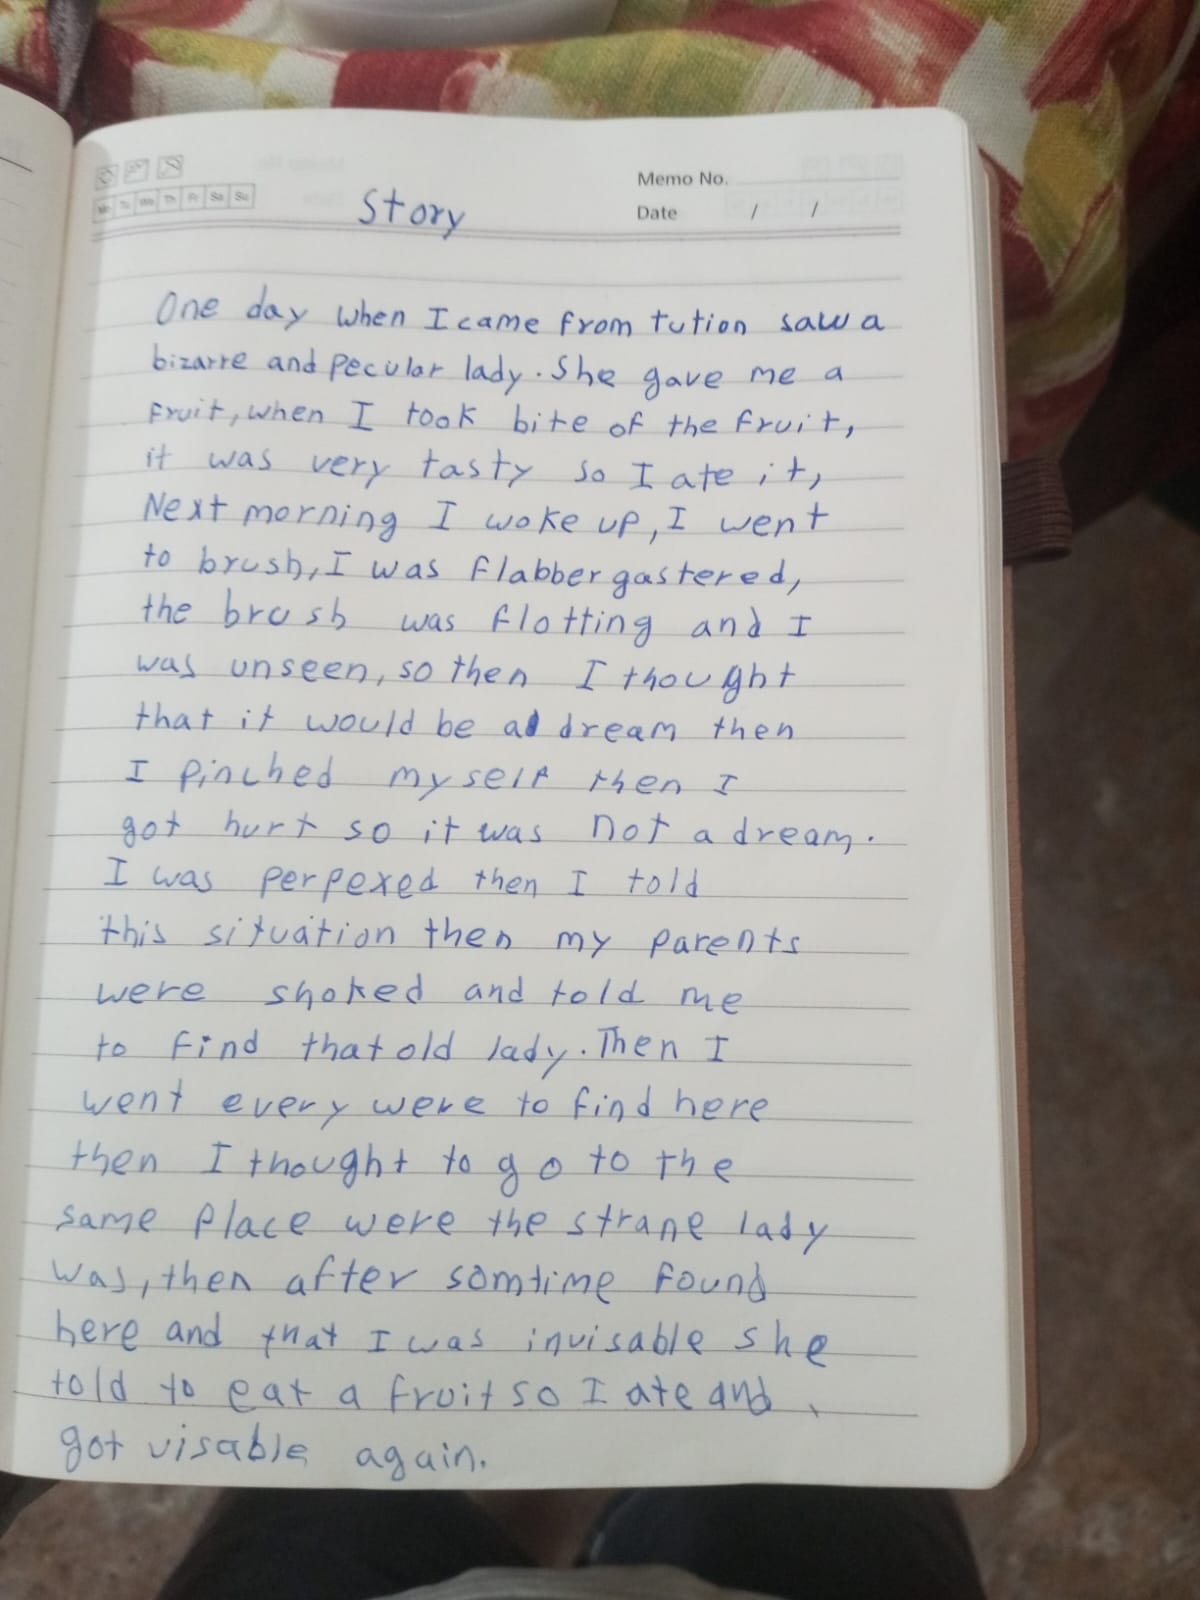 Memo No.
Mo Tu We Th Fr Sa Su
Story
Date / /
One day when I came from tution saw a
bizarre and pecular lady. She gave me a
fruit, when I took bite of the fruit,
it was very tasty so I ate it,
Next morning I woke up, I went
to brush, I was flabbergastered,
the brush was flotting and I
was unseen, so then I thought
that it would be a dream then
I pinched myself then I
got hurt so it was not a dream.
I was perpexed then I told
this situation then my parents
were shoked and told me
to find that old lady. Then I
went every were to find here
then I thought to go to the
same place were the strane lady
was, then after somtime found
here and that I was invisable she
told to eat a fruit so I ate and
got visable again.